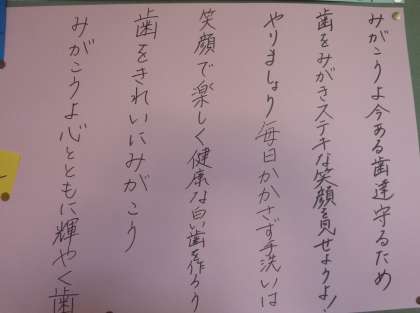 みがこうよ今ある歯達守るため
歯をみがきステキな笑顔を見せようよ!
やりましょう毎日かかさず手洗いは
笑顔で楽しく健康な白い歯を作ろう
歯をきれいにみがこう
みがこうよ心とともに輝やく歯